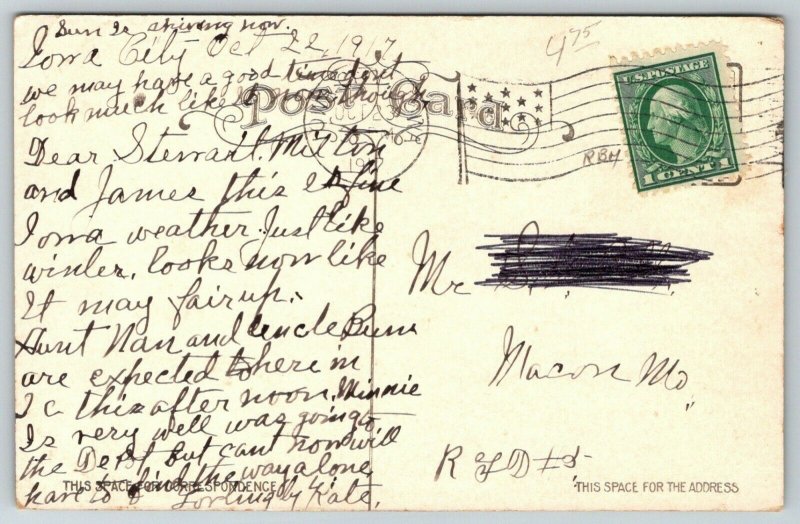 Sun is shining now.
Iowa City Oct 22, 1917
we may have a good time dont
look much like it now though
Dear Stewart. Milton
and James this is fine
Iowa weather. Just like
winter. looks now like
It may fair up.
Aunt Nan and uncle
are expected to here in
I c this after noon. Minnie
Is very well was going to
the Depot but cant now will
have to find the way alone
Lovingly Kate.
THIS SPACE FOR CORRESPONDENCE
Post Card
4 75
RBH
U.S. POSTAGE
1 CENT 1
Mr
Macon Mo
R F D #5
THIS SPACE FOR THE ADDRESS